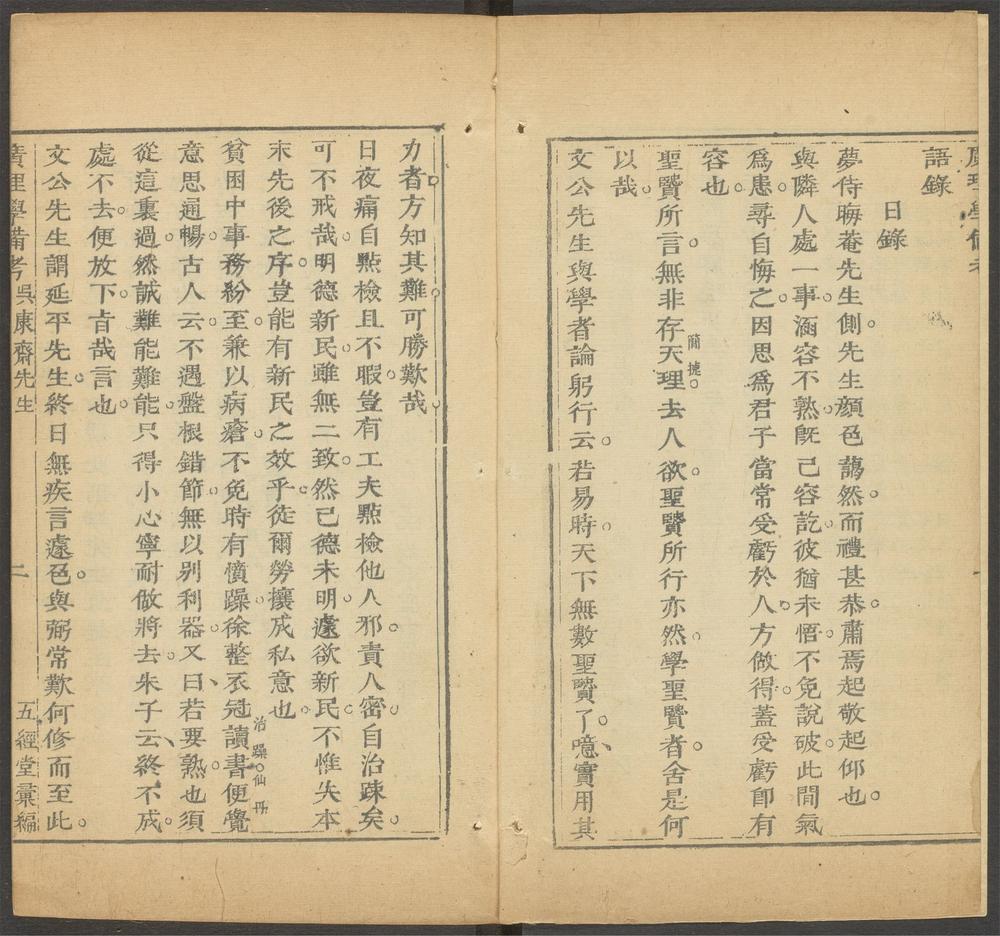 廣理學備考
語錄
日錄
夢侍晦菴先生側。先生顏色藹然。而禮甚恭。肅焉起敬起仰也。
與隣人處一事。涵容不熟。旣已容訖。彼猶未悟。不免說破。此間氣
爲患。尋自悔之。因思爲君子當常受虧於人。方做得。蓋受虧卽有
容也。
聖贒所言。無非存天理。去人欲。聖贒所行亦然。學聖贒者。舍是何
簡㨗。
以哉。
文公先生與學者論躬行云。若易時。天下無數聖贒了。噫、實用其
力者。方知其難。可勝歎哉
日夜痛自點檢且不暇。豈有工夫㸃檢他人邪。責人密。自治踈矣。
可不戒哉。明德新民。雖無二致。然已德未明。遽欲新民。不惟失本
末先後之序。豈能有新民之效乎。徒爾勞攘。成私意也。
貧困中。事務紛至。兼以病瘡。不免時有憤躁。徐整衣冠讀書。便覺
治躁。仙丹
意思通暢。古人云。不遇盤根錯節。無以别利器。又曰、若要熟也。須
從這裏過。然誠難能。難能。只得小心寧耐做將去。朱子云、終不成。
處不去。便放下。㫖哉言也。
文公先生謂延平先生。終日無疾言遽色。與弼常歎何修而至此。
廣理學備考
吳康齋先生
二
五經堂彙編